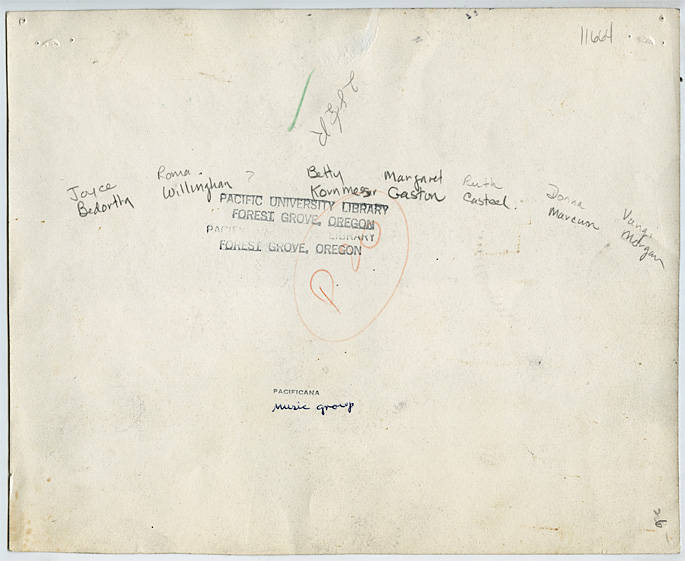 11664
Joyce
Bedortha
Roma
Willingham
?
Betty
Kornmesser
Margaret
Gaston
Ruth
Casteel
Donna
Marcum
Morgan
PACIFIC UNIVERSITY LIBRARY
FOREST GROVE, OREGON
PACIFIC LIBRARY
FOREST GROVE, OREGON
PACIFICANA
music group